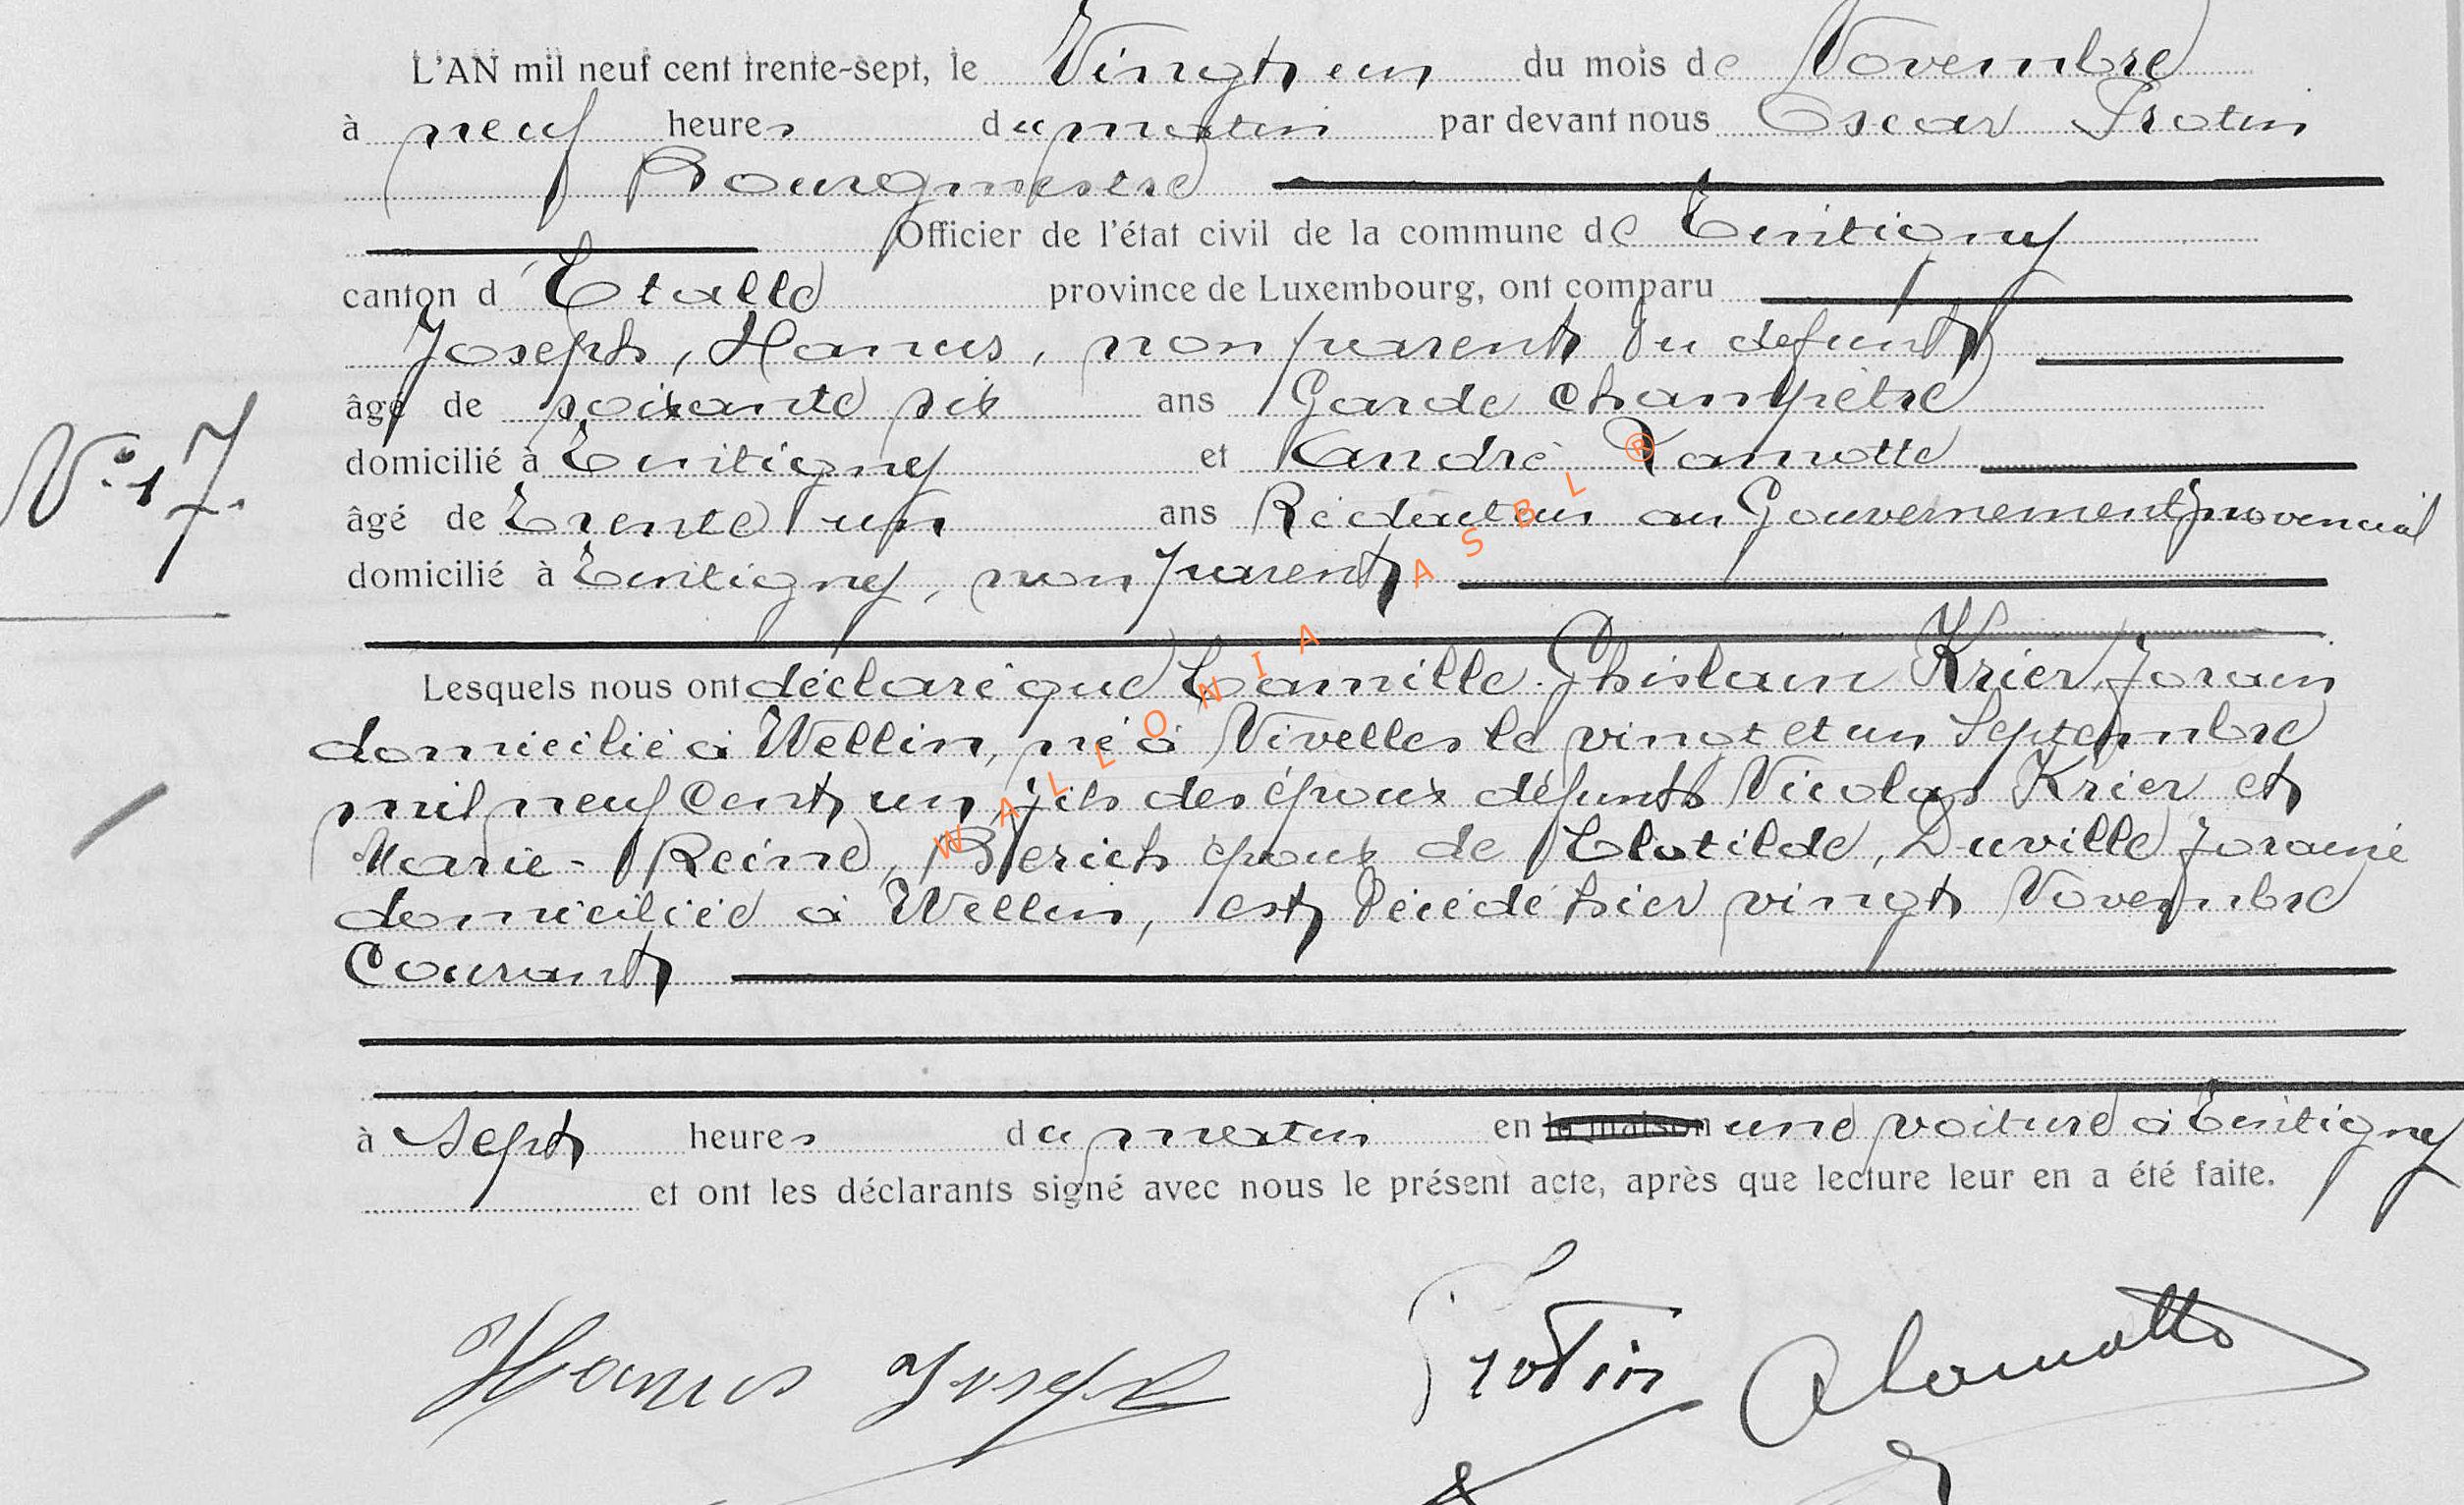 L'AN mil neuf cent trente-sept, le Vingt un du mois de Novembre
à neuf heures du matin par devant nous Oscar Protin
Bourgmestre
Officier de l'état civil de la commune de Tintigny
canton d'Etalle province de Luxembourg, ont comparu
Joseph, Hanus, non parent du defunt
âgé de soixante six ans Garde Champêtre
domicilié à Tintigny et André Lamotte
N° 17.
âgé de Trente un ans Rédacteur au Gouvernement provincial
domicilié à Tintigny, non parent
Lesquels nous ont déclaré que Camille Ghislain Krier, forain
domicilié à Wellin, né à Nivelles le vingt et un Septembre
mil neuf cent un fils des époux défunts Nicolas Krier et
Marie-Reine, Bierich époux de Clotilde, Duville foraine
domiciliée à Wellin, est décédé hier vingt Novembre
Courant
à Sept heures du matin en la maison une voiture à Tintigny
et ont les déclarants signé avec nous le présent acte, après que lecture leur en a été faite.
Hanus Joseph Protin A Lamotte
WALLONIA ASBL ®